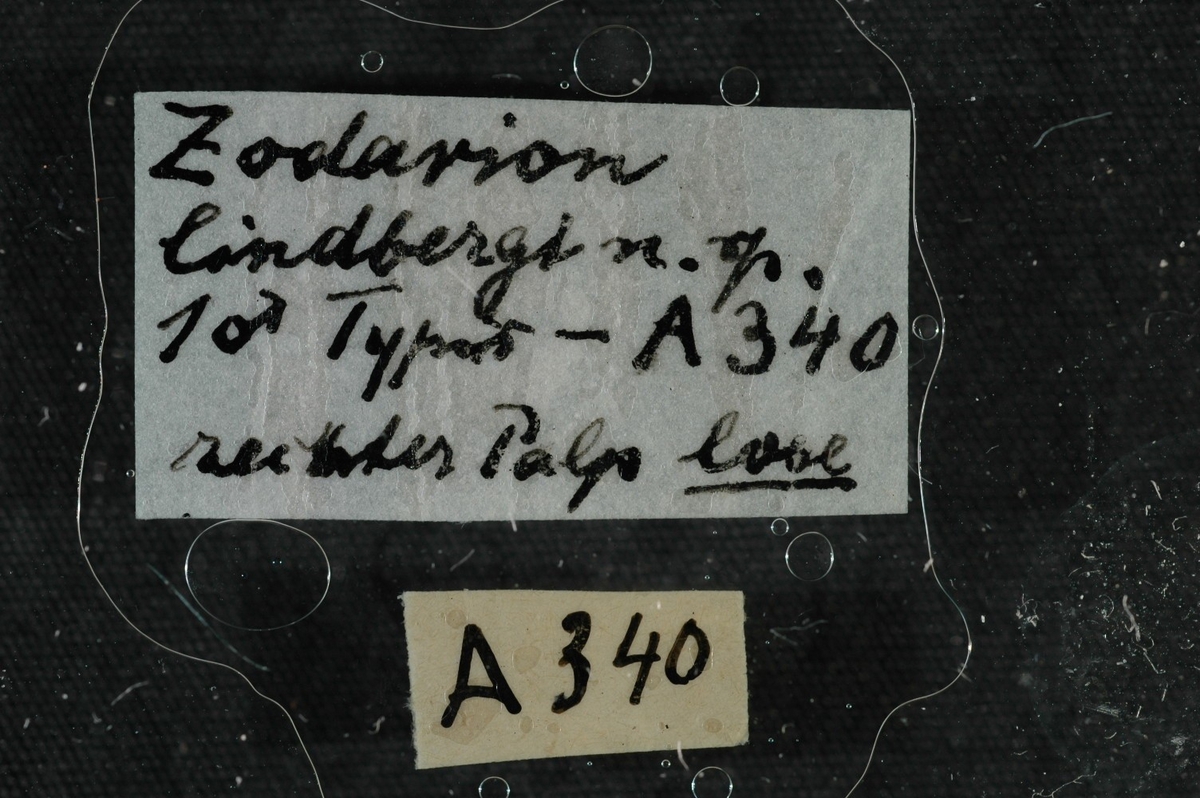 Zodarion
lindbergi n. sp.
1♂ Typus – A 340
rechter Palp lose
A 340